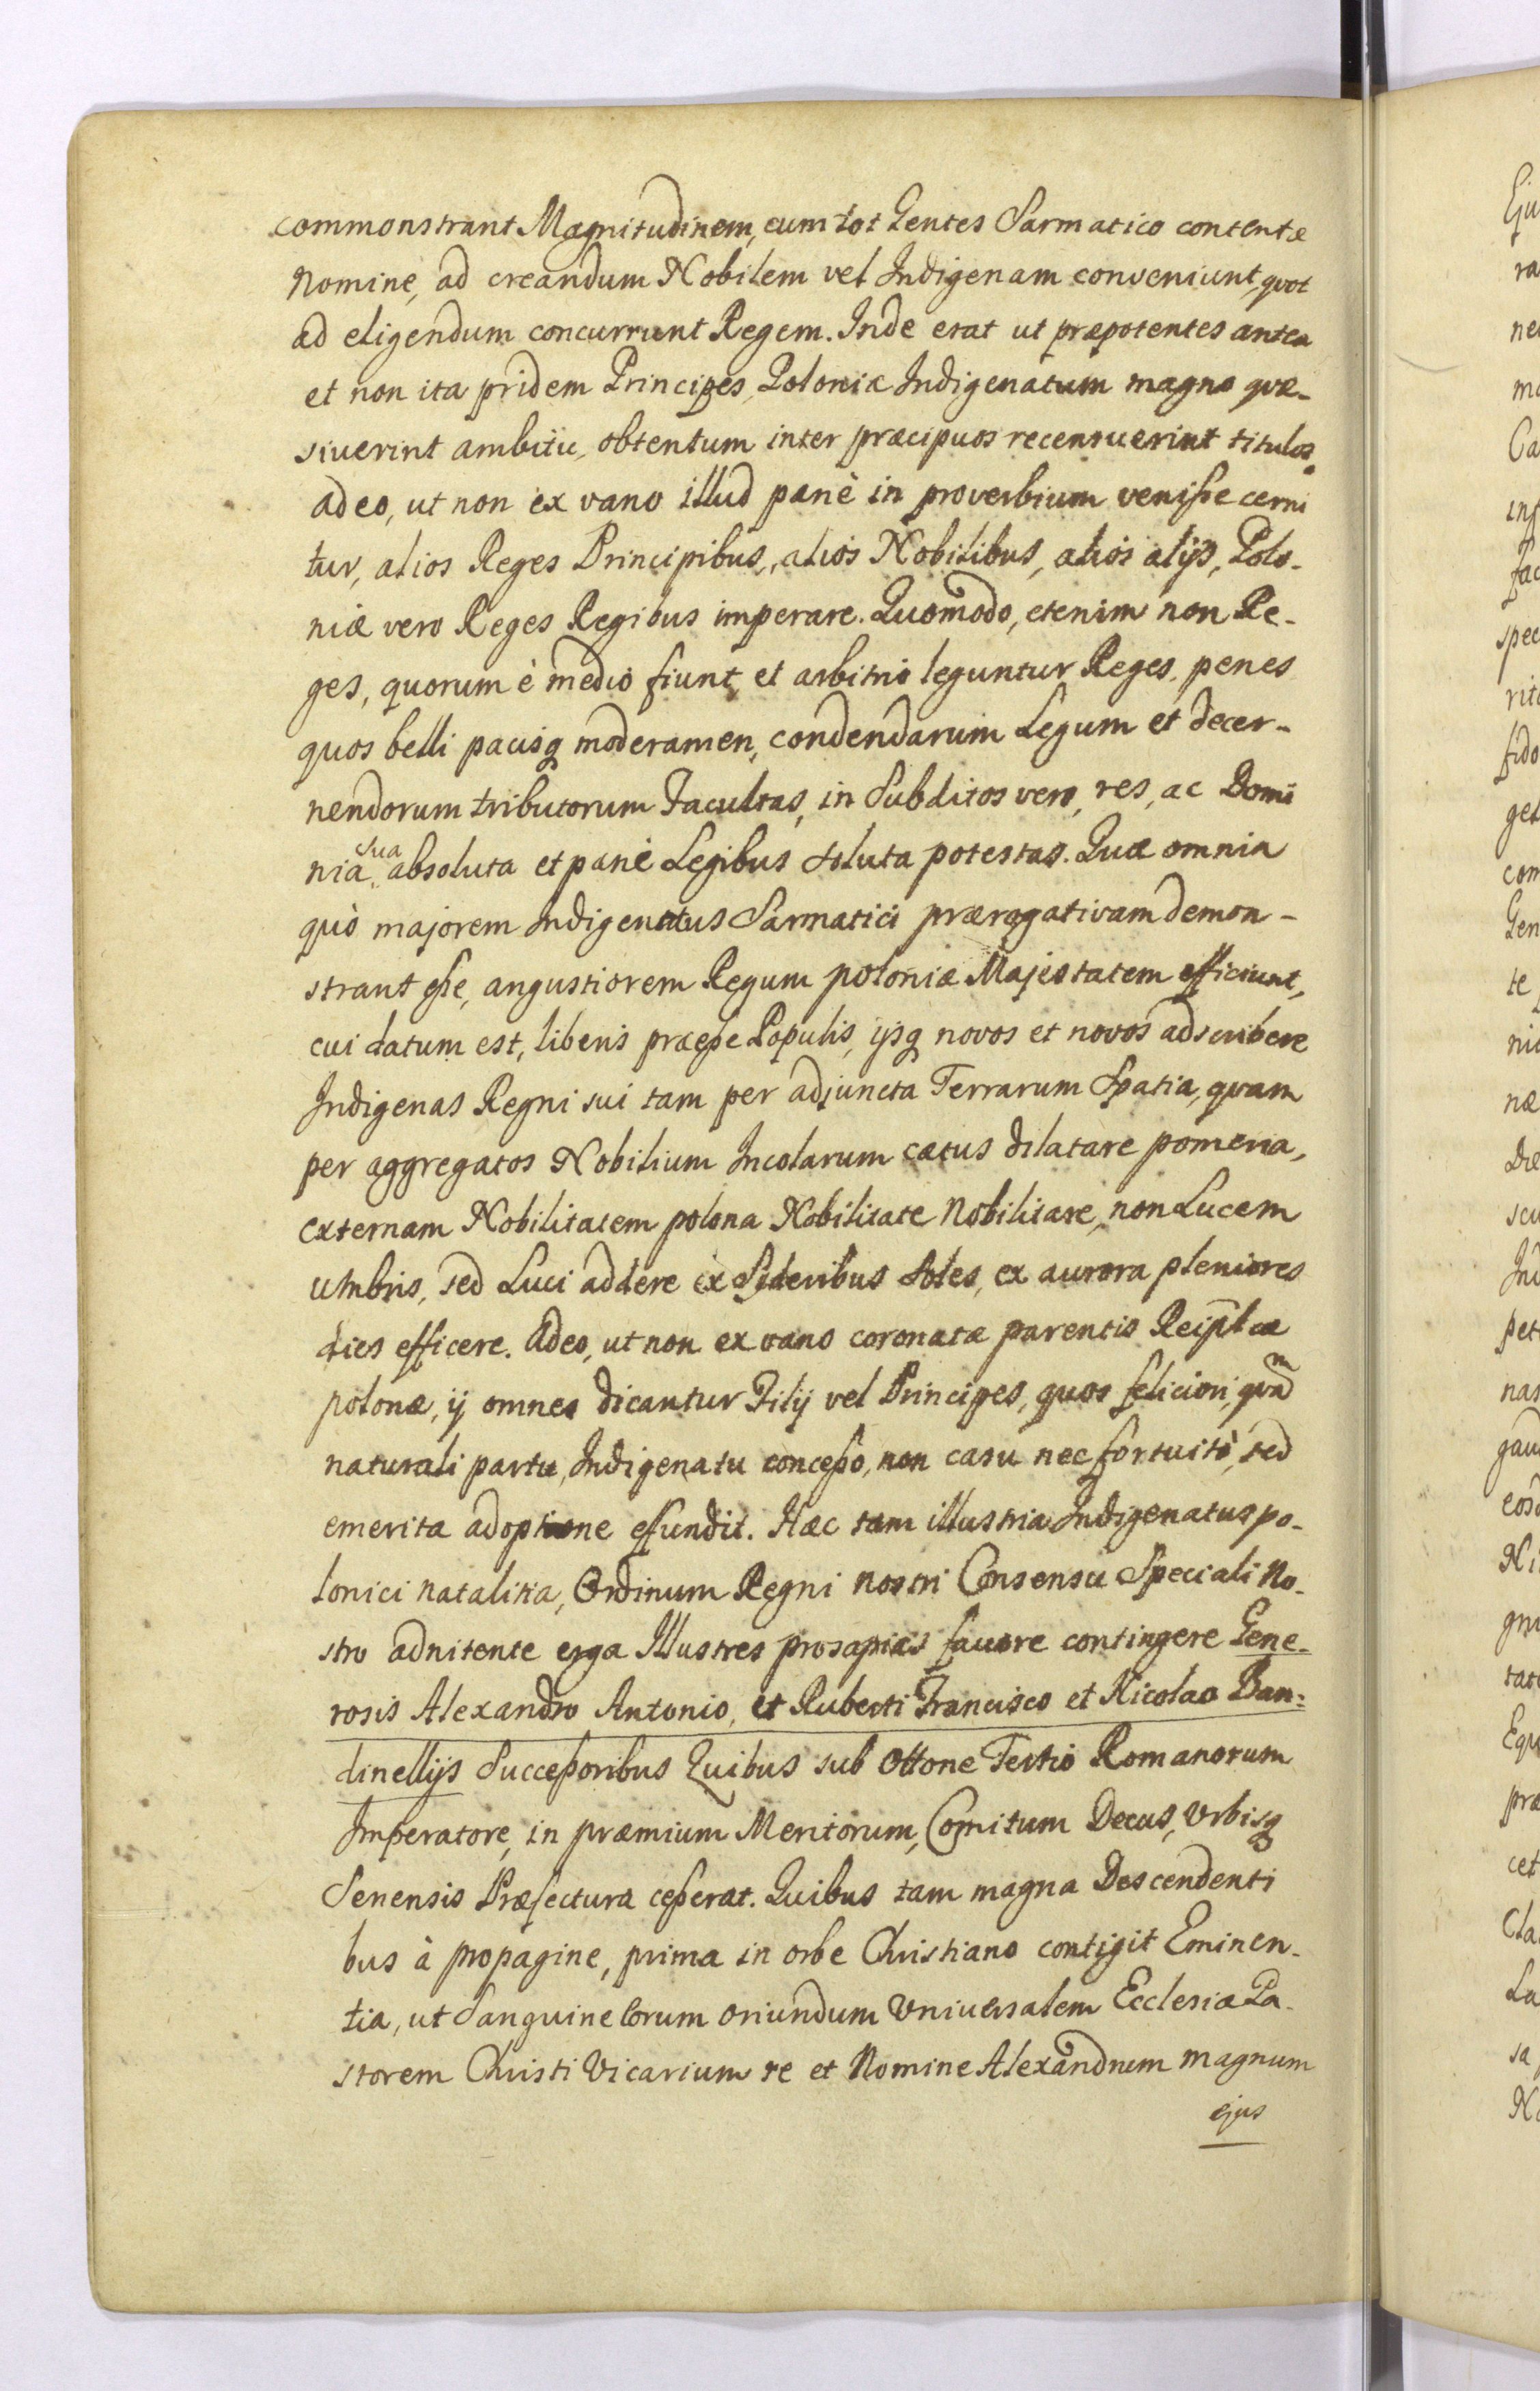 commonstrant Magnitudinem, cum tot Gentes Sarmatico contentæ
Nomine, ad creandum Nobilem vel Indigenam conveniunt, quot
ad eligendum concurrunt Regem. Inde erat ut præpotentes antea
et non ita pridem Principes, Poloniæ Indigenatum magno quæ-
siuerint ambitu, obtentum inter præcipuos recensuerint titulos,
adeo, ut non ex vano illud panè in proverbium veniße cerni
tur, alios Reges Principibus, alios Nobilibus, alios alijs, Polo-
niæ vero Reges Regibus imperare. Quomodo, etenim non Re-
ges, quorum è medio fiunt, et arbitrio leguntur Reges, penes
quos belli pacisq moderamen, condendarum Legum et decer-
nendorum tributorum Facultas, in Subditos vero, res, ac Domi
nia sua absoluta et panè Legibus soluta potestas. Quæ omnia
quò majorem Indigenatus Sarmatici prærogativam demon-
strant eße, angustiorem Regum poloniæ Majestatem efficiunt,
cui datum est, liberis præeße Populis, ijsq novos et novos adscribere
Indigenas Regni sui tam per adjuncta Terrarum Spatia, quam
per aggregatos Nobilium Incolarum cætus dilatare pomeria,
externam Nobilitatem polona Nobilitate Nobilitare, non Lucem
Umbris, sed Luci addere ex Sideribus Soles, ex aurora pleniores
dies efficere. Adeo, ut non ex vano coronatæ parentis Reiplcæ
polonæ, ij omnes dicantur Filij vel Principes, quos feliciori, quam
naturali partu, Indigenatu conceßo, non casu nec fortuitò, sed
emerita adoptione effundit. Hæc tam illustria Indigenatus po-
lonici natalitia, Ordinum Regni nostri Consensu Speciali No-
stro adnitente erga Illustres prosapias favore contingere Gene-
rosis Alexandro Antonio, et Ruberti Francisco et Nicolao Ban-
dinellijs Succeßoribus Quibus sub Ottone Tertio Romanorum
Imperatore, in præmium Meritorum, Comitum Decus, Vrbisq
Senensis Præfectura ceßerat. Quibus tam magna Descendenti
bus à propagine, prima in orbe Christiano contigit Eminen-
tia, ut Sanguine Eorum oriundum Vniversalem Ecclesiæ Pa-
storem Christi Vicarium re et Nomine Alexandrum magnum
ejus